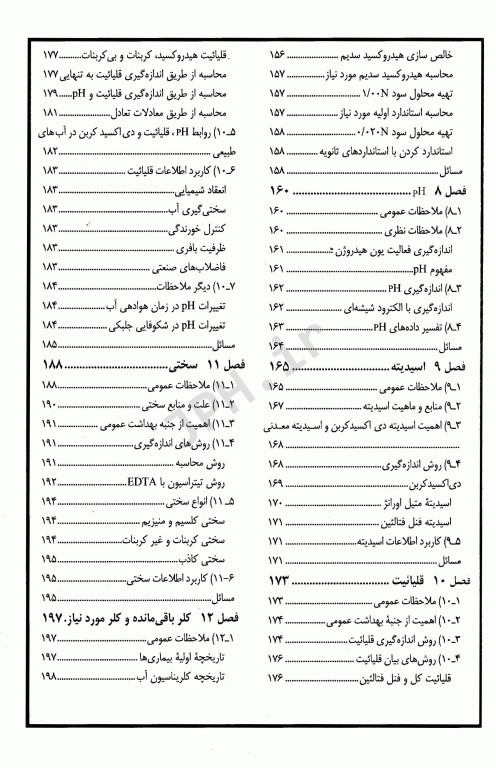 خالص سازی هیدروکسید سدیم ..................... ۱۵۶
محاسبه هیدروکسید سدیم مورد نیاز................ ۱۵۷
تهیه محلول سود ۱/۰۰N........................... ۱۵۷
محاسبه استاندارد اولیه مورد نیاز................. ۱۵۷
تهیه محلول سود ۰/۰۲۰N......................... ۱۵۸
استاندارد کردن با استانداردهای ثانویه ............. ۱۵۸
مسائل........................................... ۱۵۸
فصل ۸ pH ..................................... ۱۶۰
۸ـ۱) ملاحظات عمومی ........................... ۱۶۰
۸ـ۲) ملاحظات نظری ............................ ۱۶۰
اندازه‌گیری فعالیت یون هیدروژن ................. ۱۶۱
مفهوم pH....................................... ۱۶۱
۸ـ۳) اندازه‌گیری PH ............................ ۱۶۲
اندازه‌گیری با الکترود شیشه‌ای ................... ۱۶۲
۸ـ۴) تفسیر داده‌های PH......................... ۱۶۳
مسائل........................................... ۱۶۴
فصل ۹ اسیدیته ................................. ۱۶۵
۹ـ۱) ملاحظات عمومی ........................... ۱۶۵
۹ـ۲) منابع و ماهیت اسیدیته ..................... ۱۶۷
۹ـ۳) اهمیت اسیدیته دی اکسیدکربن و اسـیدیته معـدنی
................................................ ۱۶۸
۹ـ۴) روش اندازه‌گیری........................... ۱۶۸
دی‌اکسیدکربن.................................... ۱۶۹
اسیدیتهٔ متیل اورانژ ............................. ۱۷۰
اسیدیته فنل فتالئین ............................. ۱۷۱
۹ـ۵) کاربرد اطلاعات اسیدیته..................... ۱۷۱
مسائل........................................... ۱۷۱
فصل ۱۰ قلیائیت ................................ ۱۷۳
۱۰ـ۱) ملاحظات عمومی .......................... ۱۷۳
۱۰ـ۲) اهمیت از جنبهٔ بهداشت عمومی .............. ۱۷۴
۱۰ـ۳) روش اندازه‌گیری قلیائیت................... ۱۷۴
۱۰ـ۴) روش‌های بیان قلیائیت ..................... ۱۷۶
قلیائیت کل و فنل فتالئین ........................ ۱۷۶
قلیائیت هیدروکسید، کربنات و بی‌کربنات........... ۱۷۷
محاسبه از طریق اندازه‌گیری قلیائیت به تنهایی ۱۷۷
محاسبه از طریق اندازه‌گیری قلیائیت و pH...... ۱۷۹
محاسبه از طریق معادلات تعادل................... ۱۸۱
۱۰ـ۵) روابط PH ، قلیائیت و دی‌اکسید کربن در آب‌های
طبیعی .......................................... ۱۸۲
۱۰ـ۶) کاربرد اطلاعات قلیائیت ................... ۱۸۳
انعقاد شیمیایی.................................. ۱۸۳
سختی‌گیری آب.................................... ۱۸۳
کنترل خورندگی................................... ۱۸۳
ظرفیت بافری..................................... ۱۸۳
فاضلاب‌های صنعتی ............................... ۱۸۳
۱۰ـ۷) دیگر ملاحظات............................. ۱۸۴
تغییرات pH در زمان هوادهی آب ................... ۱۸۴
تغییرات pH در شکوفایی جلبکی .................... ۱۸۴
مسائل........................................... ۱۸۵
فصل ۱۱ سختی................................... ۱۸۸
۱۱ـ۱) ملاحظات عمومی........................... ۱۸۸
۱۱ـ۲) علت و منابع سختی ........................ ۱۹۰
۱۱ـ۳) اهمیت از جنبه بهداشت عمومی .............. ۱۹۱
۱۱ـ۴) روش‌های اندازه‌گیری....................... ۱۹۱
روش محاسبه ..................................... ۱۹۱
روش تیتراسیون با EDTA.......................... ۱۹۲
۱۱ـ۵) انواع سختی .............................. ۱۹۴
سختی کلسیم و منیزیم ............................ ۱۹۴
سختی کربنات و غیر کربنات....................... ۱۹۴
سختی کاذب....................................... ۱۹۵
۱۱-۶) کاربرد اطلاعات سختی...................... ۱۹۵
مسائل........................................... ۱۹۵
فصل ۱۲ کلر باقی‌مانده و کلر مورد نیاز. ۱۹۷
۱۲ـ۱) ملاحظات عمومی .......................... ۱۹۷
تاریخچهٔ اولیهٔ بیماری‌ها ....................... ۱۹۷
تاریخچه کلریناسیون آب........................... ۱۹۸
JPH.ir